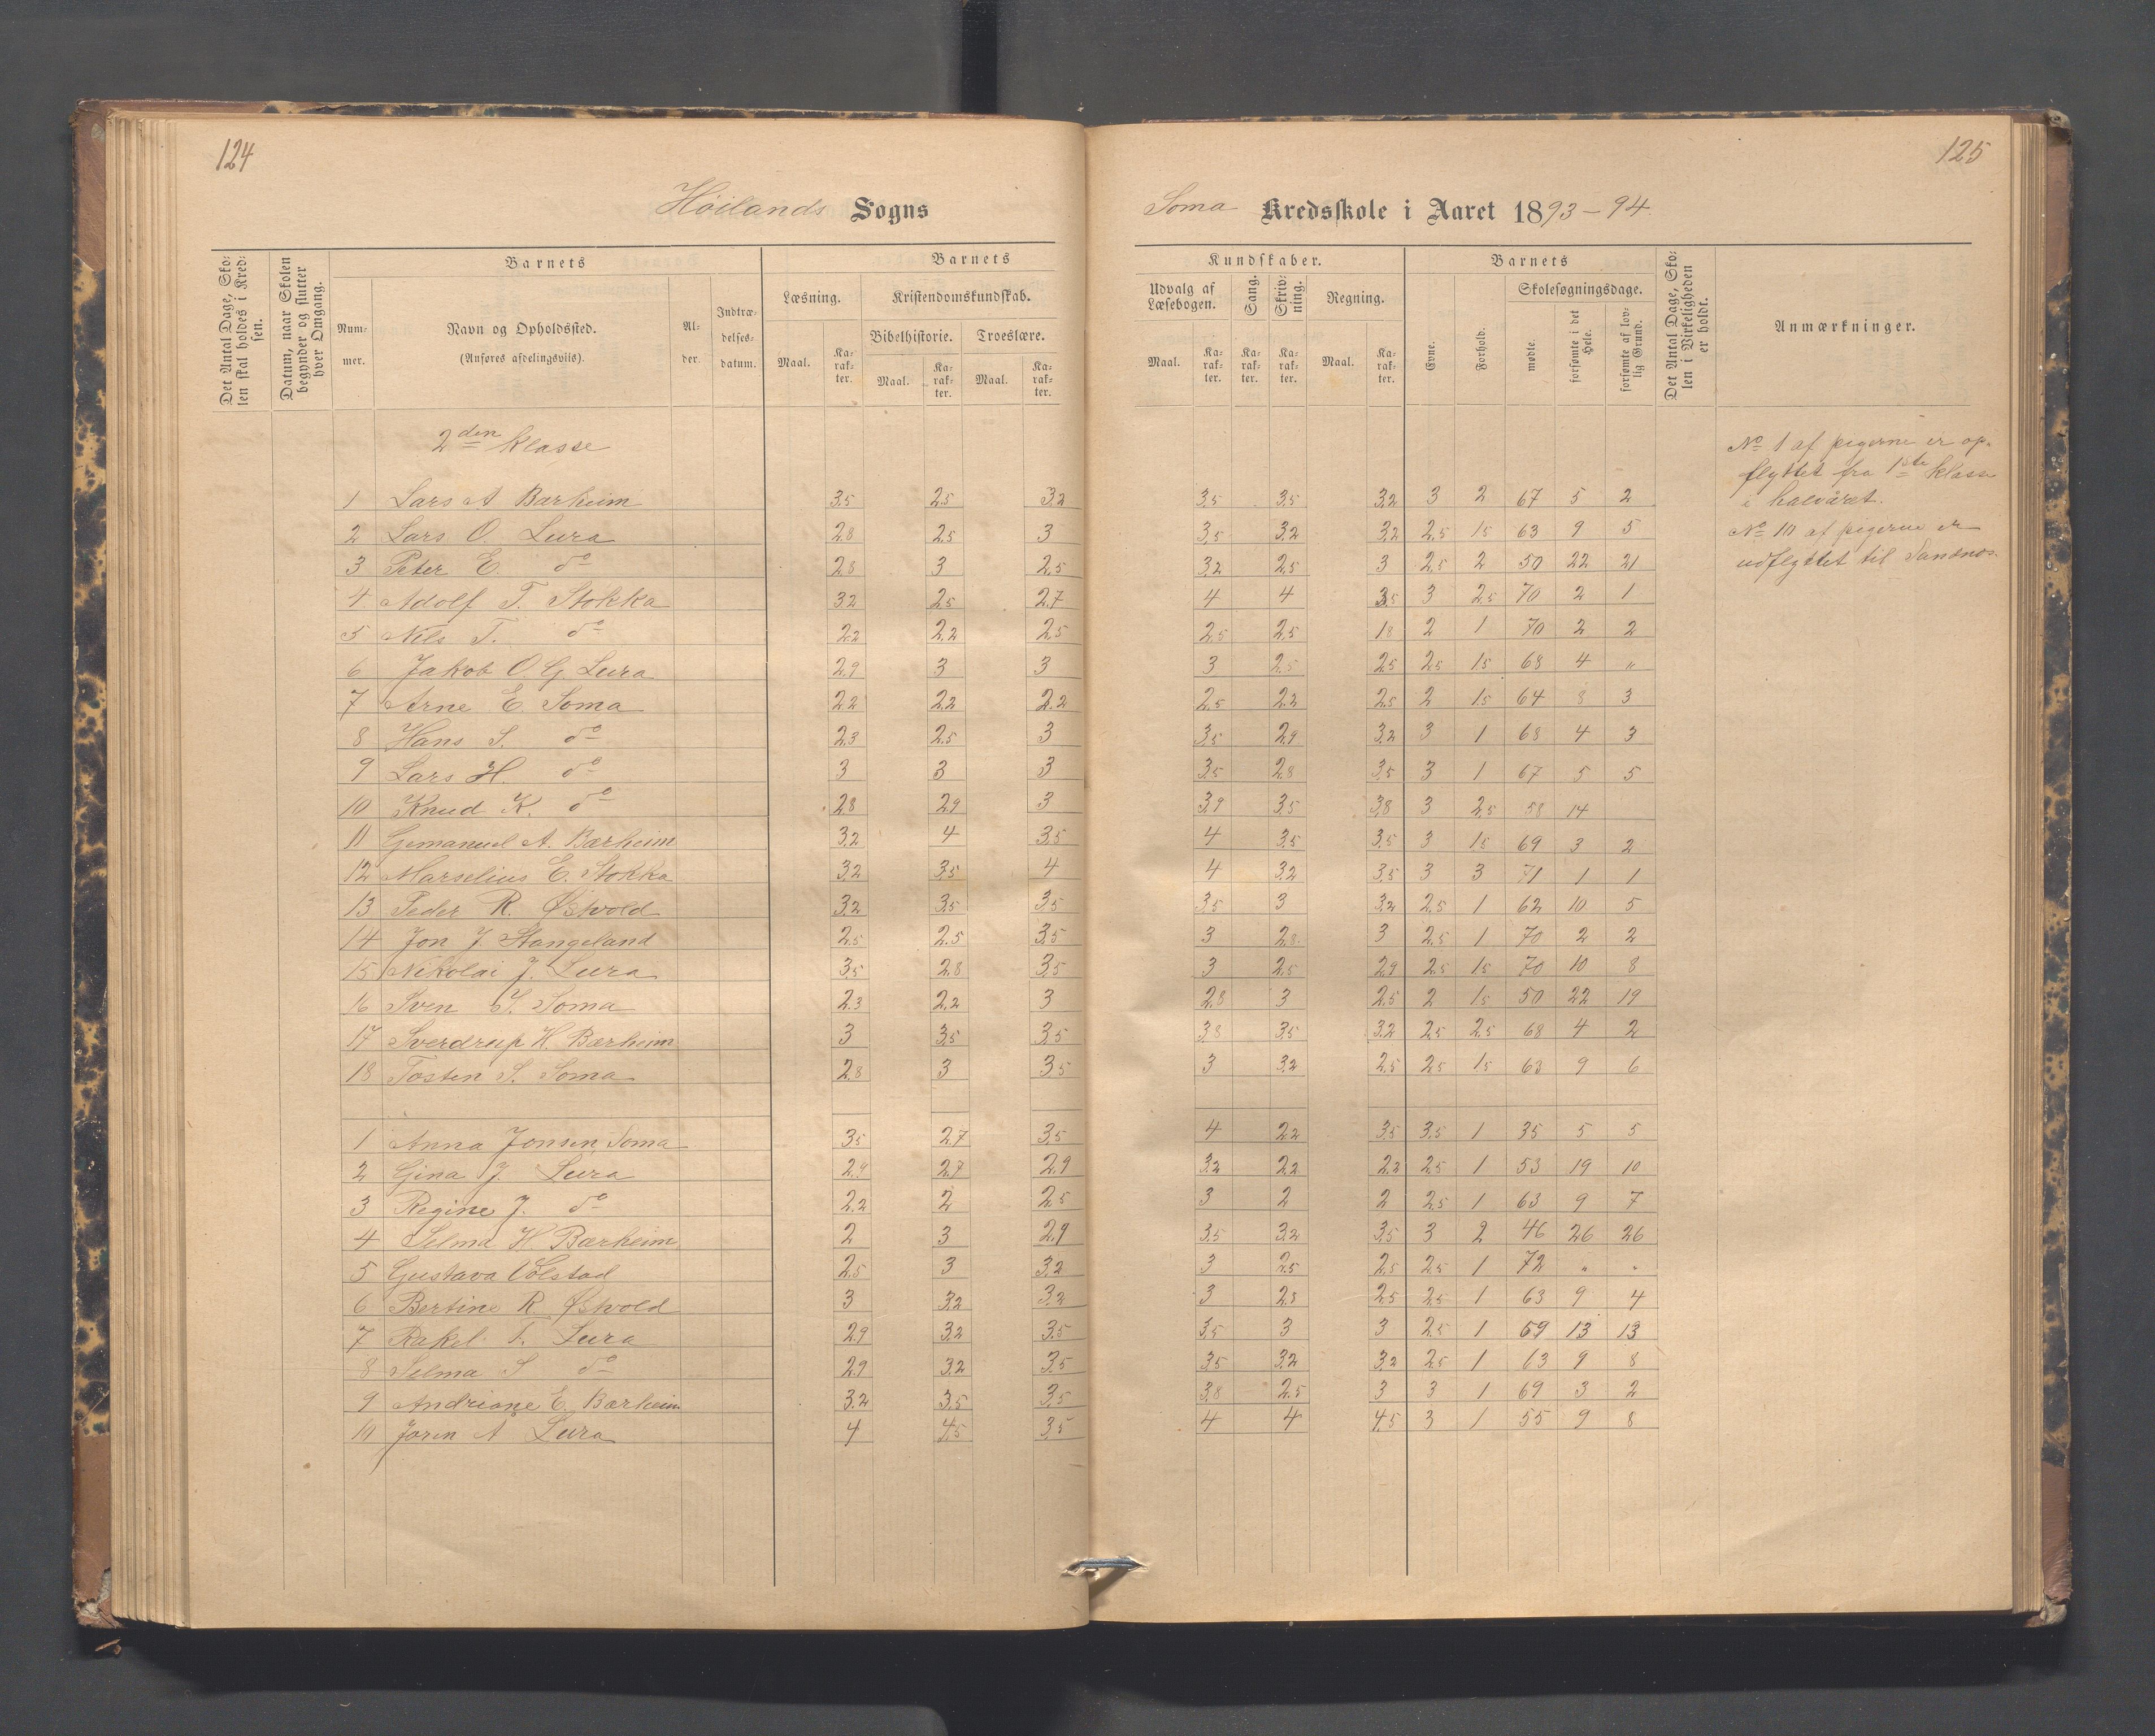 124
125
Höilands Sogns
Soma Kredsskole i Aaret 1893-94
Det Antal Dage, Skolen skal holdes i Kredsen.
Datum, naar Skolen begynder og slutter hver Omgang.
Barnets
Nummer.
Navn og Opholdssted.
(Anføres afdelingsviis).
Alder.
Indtrædelsesdatum.
Barnets Kundskaber.
Læsning.
Kristendomskundskab.
Bibelhistorie.
Troeslære.
Maal. Karakter. Maal. Karakter. Maal. Karakter.
Udvalg af Læsebogen.
Sang.
Skrivning.
Regning.
Maal. Karakter. Karakter. Karakter. Maal. Karakter.
Barnets
Evne.
Forhold.
Skolesøgningsdage.
mødte.
forsømte i det Hele.
forsømte af lovlig Grund.
Det Antal Dage, Skolen i Virkeligheden er holdt.
Anmærkninger.
2den Klasse
1 Lars A Bærheim 3,5 2,5 3,2 3,5 3,5 3,2 3 2 67 5 2
2 Lars O. Lura 2,8 2,5 3 3,5 3,2 3,2 2,5 1,5 63 9 5
3 Peter E. do 2,8 3 2,5 3,2 2,5 3 2,5 2 50 22 21
4 Adolf T. Stokka 3,2 2,5 2,7 4 4 3,5 3 2,5 70 2 1
5 Nils T. do 2,2 2,2 2,5 2,5 2,5 1,8 2 1 70 2 2
6 Jakob O. G. Lura 2,9 3 3 3 2,5 2,5 2,5 1,5 68 4 "
7 Arne E. Soma 2,2 2,2 2,2 2,5 2,2 2,5 2 1,5 64 8 3
8 Hans S. do 2,3 2,5 3 3,5 2,9 3,2 3 1 68 4 3
9 Lars H. do 3 3 3 3,5 2,8 3,5 3 1 67 5 5
10 Knud K. do 2,8 2,9 3 3,9 3,5 3,8 3 2,5 58 14
11 Gemanuel A. Bærheim 3,2 4 3,5 4 3,5 3,5 3 1,5 69 3 2
12 Marselius E. Stokka 3,2 3,5 4 4 3,2 3,5 3 3 71 1 1
13 Peder R. Østvold 3,2 3,5 3,5 3,5 3 3,2 2,5 1 62 10 5
14 Jon J. Stangeland 2,5 2,5 3,5 3 2,8 3 2,5 1 70 2 2
15 Nikolai J. Lura 3,5 2,8 3,5 3 2,5 2,9 2,5 1,5 70 10 8
16 Sven S. Soma 2,3 2,2 3 2,8 3 2,5 2 1,5 50 22 19
17 Sverdrup H. Bærheim 3 3,5 3,5 3,8 3,5 3,2 2,5 2,5 68 4 2
18 Tosten S. Soma 2,8 3 3,5 3 3,2 2,5 2,5 1,5 63 9 6
1 Anna Jonsen Soma 3,5 2,7 3,5 4 2,2 3,5 3,5 1 35 5 5
2 Gina J. Lura 2,9 2,7 2,9 3,2 2,2 2,2 2,5 1 53 19 10
3 Regine J. do 2,2 2 2,5 3 2 2 2,5 1 63 9 7
4 Selma H. Bærheim 2 3 2,9 3,5 3,2 3,5 3 2 46 26 26
5 Gustava Volstad 2,5 3 3,2 3 2,5 2,5 2,5 1 72 " "
6 Bertine R Østvold 3 3,2 3,2 3 2,8 2,5 2,5 1 63 9 4
7 Rakel T. Lura 2,9 3,2 3,5 3,5 3 3 2,5 1 59 13 13
8 Selma S do 2,9 3,2 3,5 3,5 3,2 3,2 2,5 1 63 9 8
9 Andriane E. Bærheim 3,2 3,5 3,5 3,8 2,5 3 3 1 69 3 2
10 Joren A Lura 4 4,5 3,5 4 4 4,5 3 1 55 9 8
No 1 af pigerne er op-
flyttet fra 1ste klasse
i halvåret.
No 10 af pigerne er
udflyttet til Sandnes.